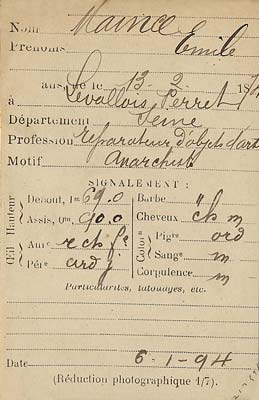 Nom Mainca
Prénoms Emile
ans, né le 13. 2. 187
à Levallois-Perret
Département Seine
Profession réparateur d'objets d'art
Motif Anarchiste
SIGNALEMENT :
Hauteur
Debout, 1m 69.0
Assis, 0m, 90.0
Barbe
Cheveux ch m
Œil
Aure r ch fe
Pérre ard j
Color
Pigre ord
Sange m
Corpulence m
Particularités, tatouages, etc.
Date 6-1-94
(Réduction photographique 1/7).